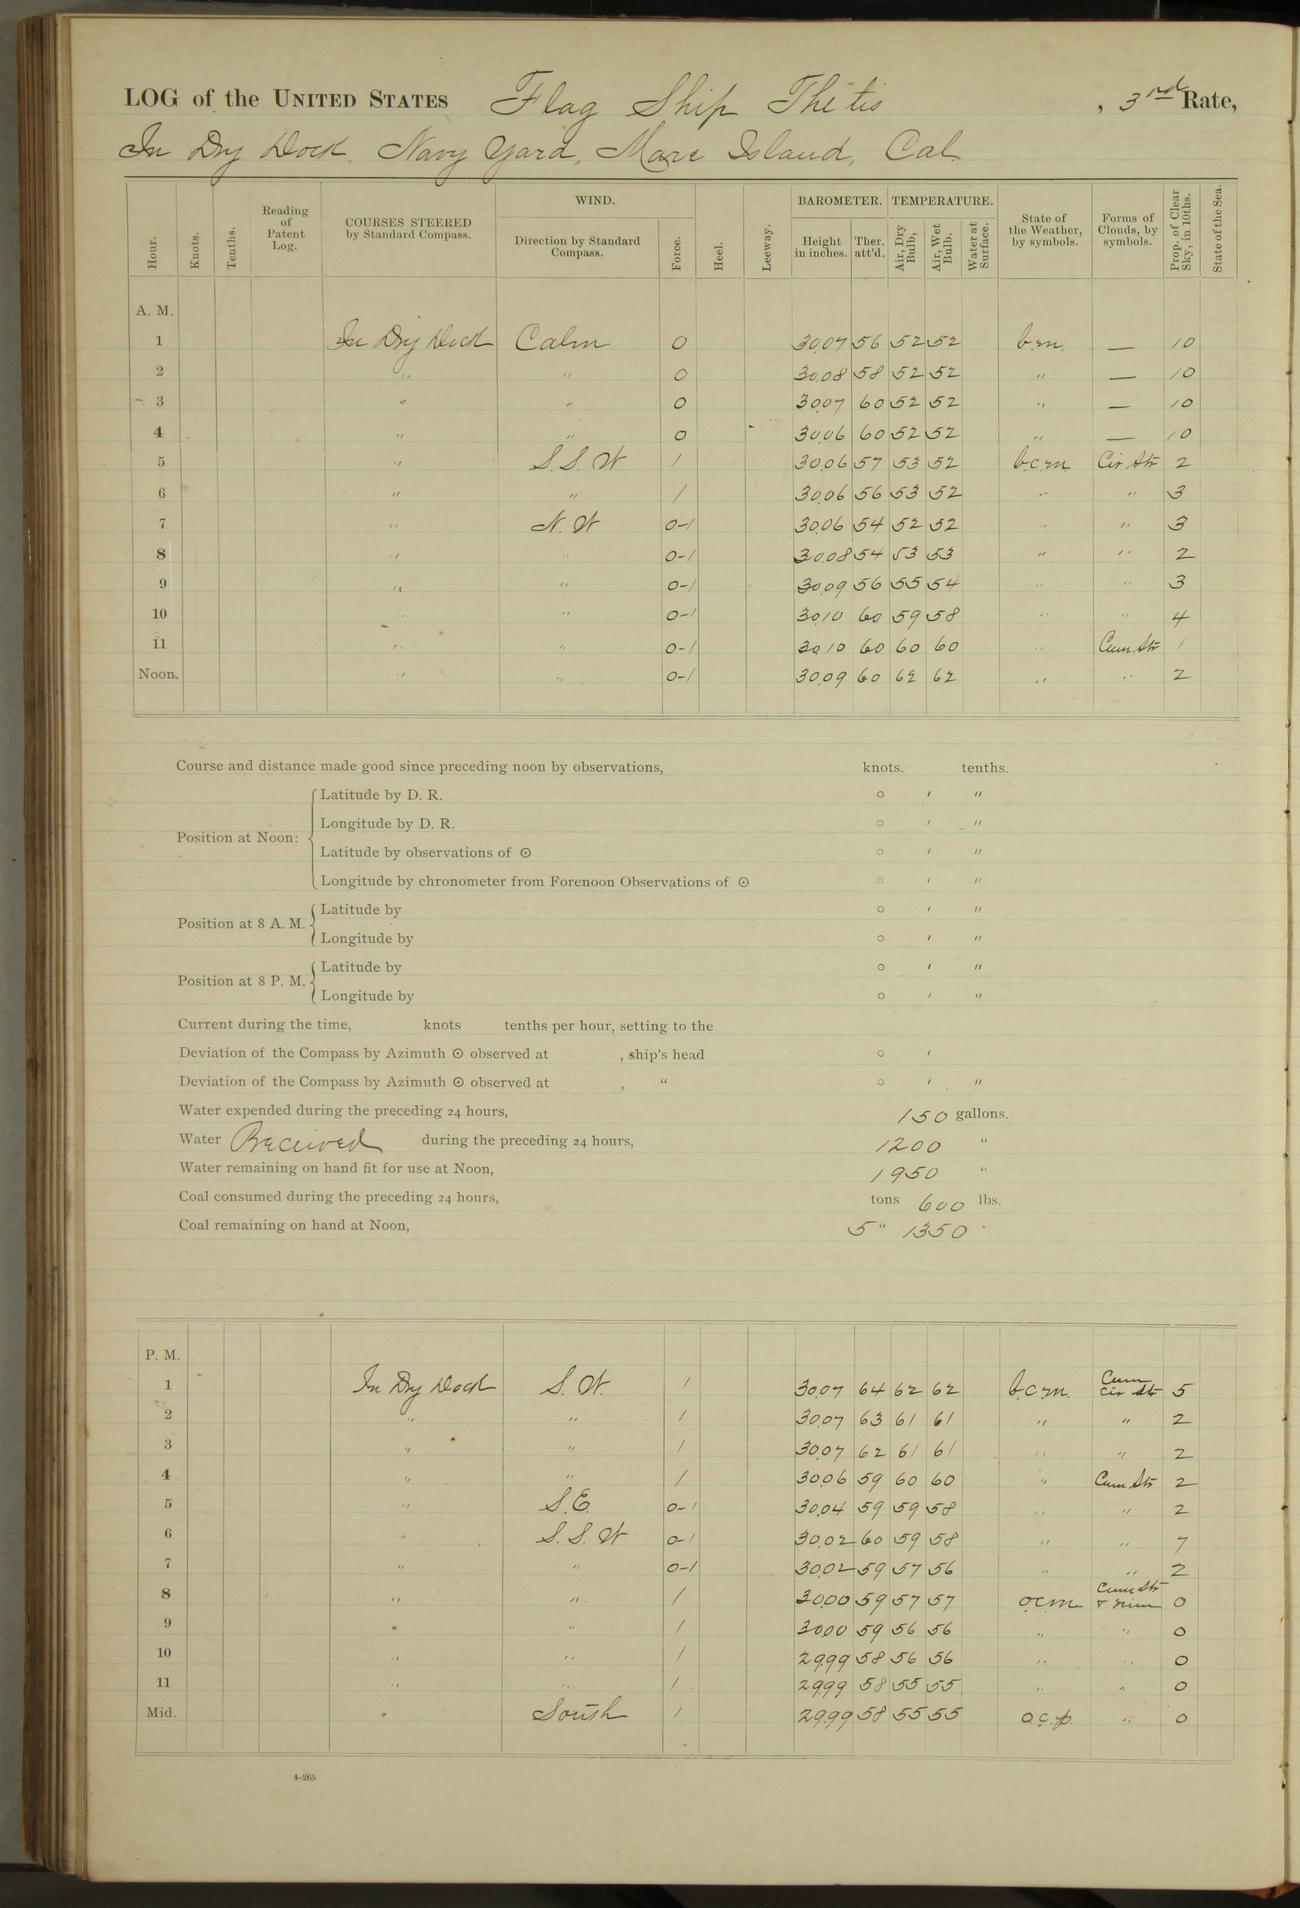 LOG of the UNITED STATES Flag Ship Thetis , 3rd Rate,
In Dry Dock, Navy Yard, Mare Island, Cal.
Hour. Knots. Tenths. Reading of Patent Log. COURSES STEERED by Standard Compass. WIND. Direction by Standard Compass. Force. Heel. Leeway. BAROMETER. Height in inches. Ther. att'd. TEMPERATURE. Air, Dry Bulb, Air, Wet Bulb. Water at Surface. State of the Weather, by symbols. Forms of Clouds, by symbols. Prop. of Clear Sky, in 10ths. State of the Sea.
A. M.
1 In Dry Dock Calm 0 30.07 56 52 52 b.m. — 10
2 " " 0 30.08 58 52 52 " — 10
3 " " 0 30.07 60 52 52 " — 10
4 " " 0 30.06 60 52 52 " — 10
5 " S.S.W 1 30.06 57 53 52 b.c.m. Cir Str 2
6 " " 1 30.06 56 53 52 " " 3
7 " N.W 0-1 30.06 54 52 52 " " 3
8 " " 0-1 30.08 54 53 53 " " 2
9 " " 0-1 30.09 56 55 54 " " 3
10 " " 0-1 30.10 60 59 58 " " 4
11 " " 0-1 30.10 60 60 60 " Cum. Str 1
Noon. " " 0-1 30.09 60 62 62 " " 2
Course and distance made good since preceding noon by observations, knots. tenths.
Position at Noon: Latitude by D. R. ° ' "
Longitude by D. R. ° ' "
Latitude by observations of ⊙ ° ' "
Longitude by chronometer from Forenoon Observations of ⊙ ° ' "
Position at 8 A. M. Latitude by ° ' "
Longitude by ° ' "
Position at 8 P. M. Latitude by ° ' "
Longitude by ° ' "
Current during the time, knots tenths per hour, setting to the
Deviation of the Compass by Azimuth ⊙ observed at , ship's head ° '
Deviation of the Compass by Azimuth ⊙ observed at , " ° ' "
Water expended during the preceding 24 hours, 150 gallons.
Water Received during the preceding 24 hours, 1200 "
Water remaining on hand fit for use at Noon, 1950 "
Coal consumed during the preceding 24 hours, tons 600 lbs.
Coal remaining on hand at Noon, 5 " 1350 "
P. M.
1 In Dry Dock S.W. 1 30.07 64 62 62 b.c.m. Cum Cir Str 5
2 " " 1 30.07 63 61 61 " " 2
3 " " 1 30.07 62 61 61 " " 2
4 " " 1 30.06 59 60 60 " Cum. Str 2
5 " S.E. 0-1 30.04 59 59 58 " " 2
6 " S.S.W 0-1 30.02 60 59 58 " " 7
7 " " 0-1 30.02 59 57 56 " " 2
8 " " 1 30.00 59 57 57 o.c.m. Cum Str & Nim 0
9 " " 1 30.00 59 56 56 " " 0
10 " " 1 29.99 58 56 56 " " 0
11 " " 1 29.99 58 55 55 " " 0
Mid. " South 1 29.99 58 55 55 o.c.p. " 0
4-265